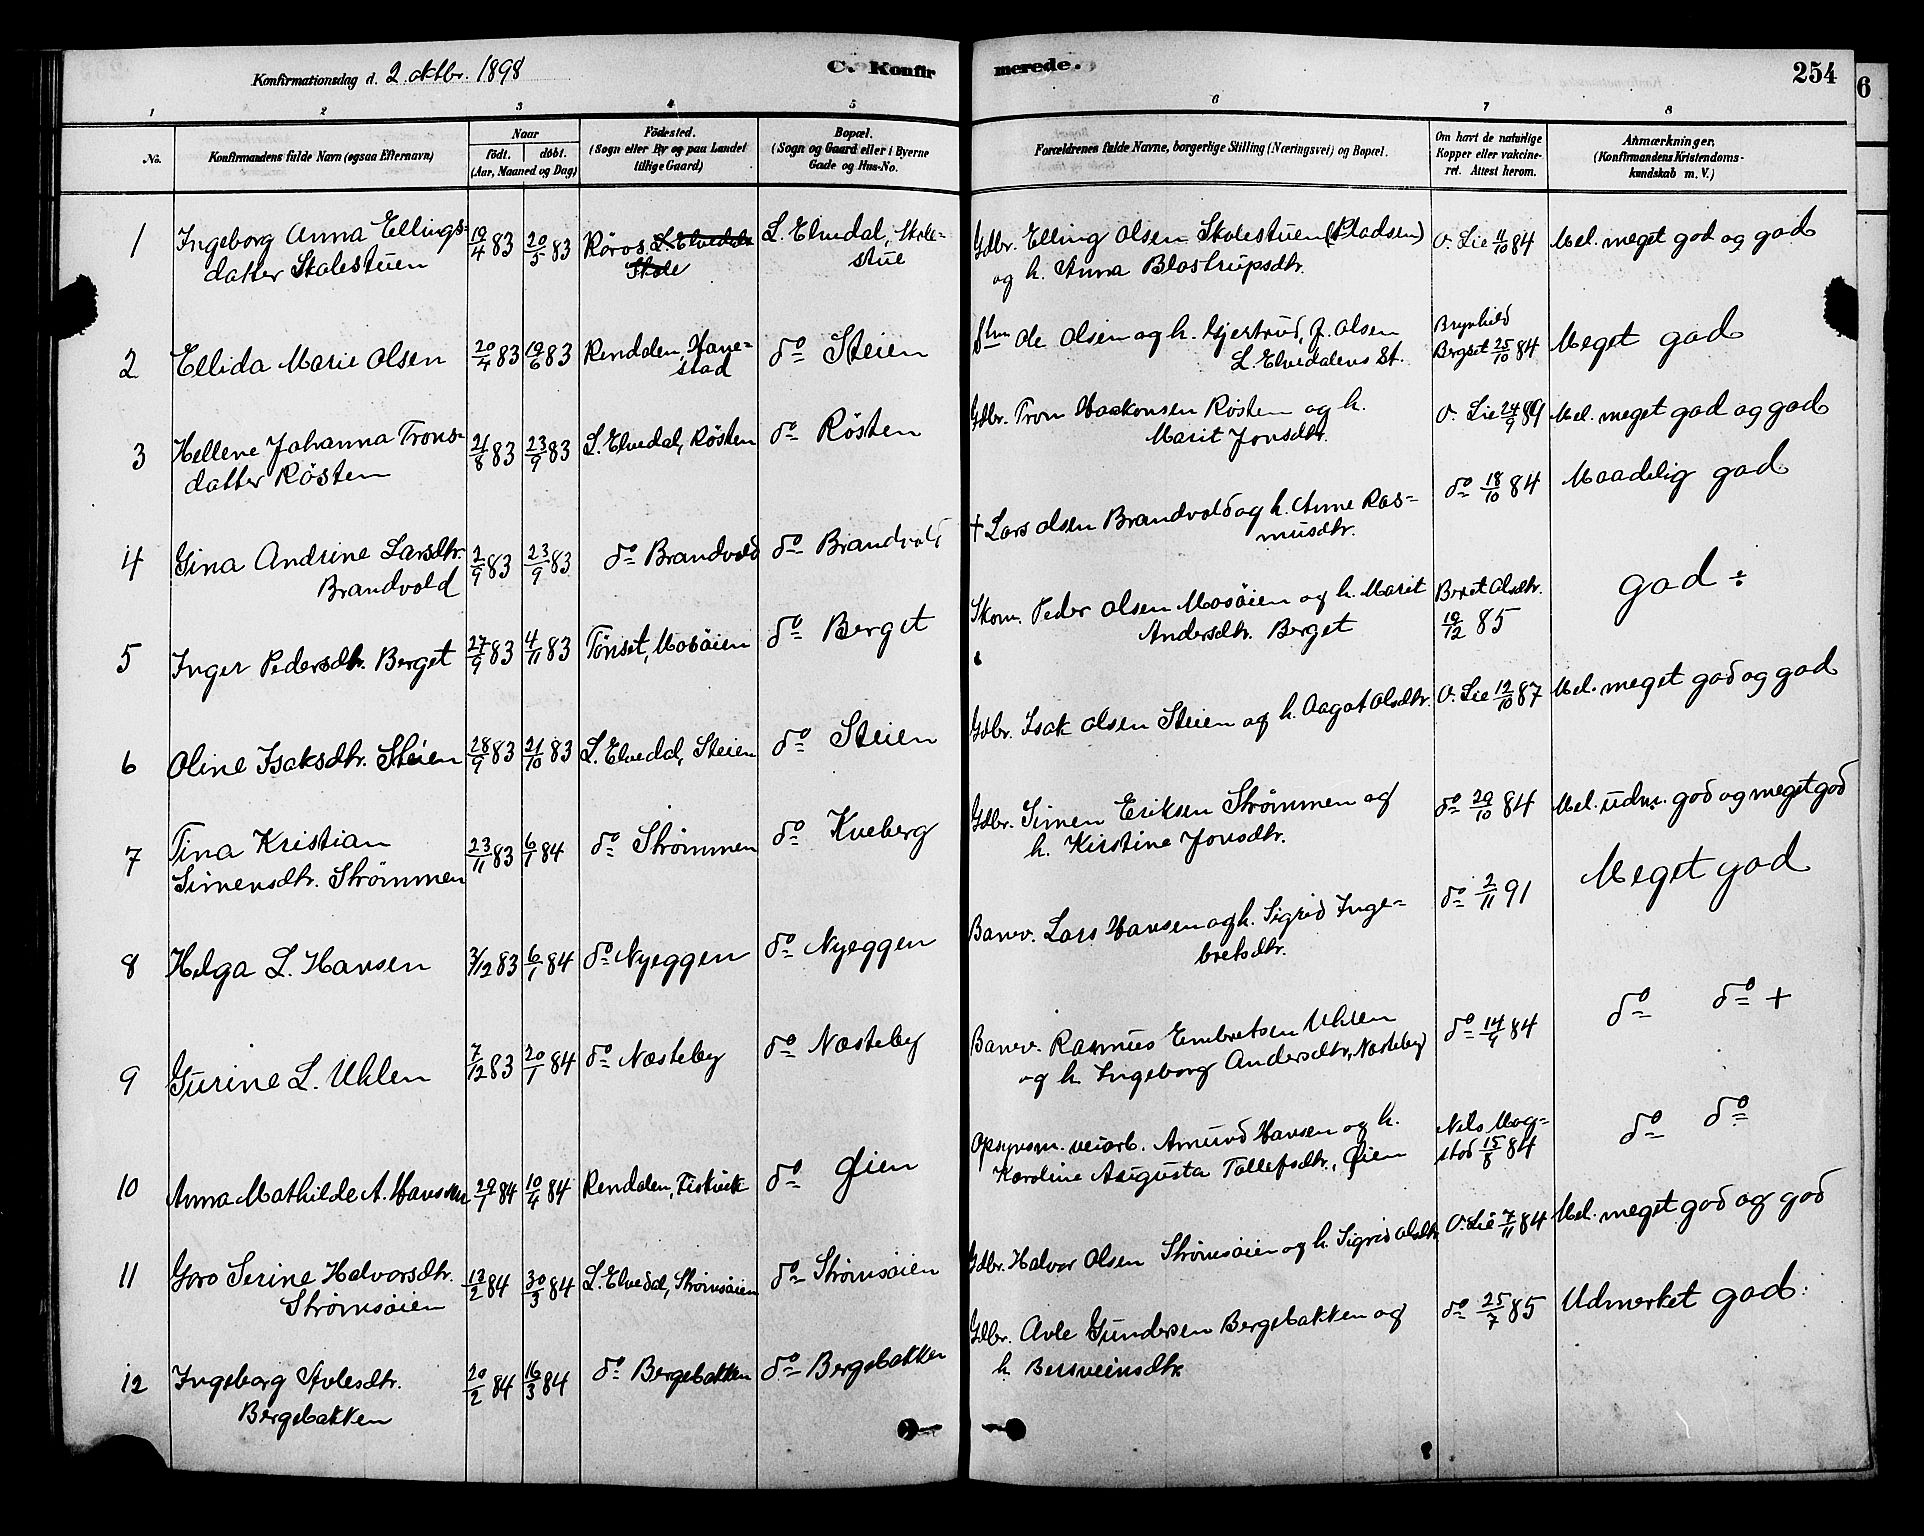 Konfirmationsdag d. 2. oktbr. 1898
C. Konfirmerede.
254
6
1 2 3 4 5 6 7 8
No.
Konfirmandens fulde Navn (ogsaa Efternavn)
Naar
födt. döbt.
(Aar, Maaned og Dag)
Födested.
(Sogn eller By og paa Landet
tillige Gaard)
Bopæl.
(Sogn og Gaard eller i Byerne
Gade og Hus-No.
Forældrenes fulde Navne, borgerlige Stilling (Næringsvei) og Bopæl.
Om havt de naturlige
Kopper eller vakcine-
ret. Attest herom.
Anmærkninger.
(Konfirmandens Kristendoms-
kundskab m. V.)
1 Ingeborg Anna Ellings- 19/4 83 20/5 83 Röros L. Elvedal L. Elvedal, Skole- Gdbr. Elling Olsen Skolestuen (Pladsen) O. Lie 11/10 84 Mel. meget god og god
datter Skolestuen Skole stue og h. Anna Blostrupsdtr.
2 Ellida Marie Olsen 20/4 83 19/6 83 Rendalen, Hane- do Steien Ole Olsen og h. Gjertrud, J. Olsen Brynhild Meget god
stad L. Elvedalens St. Bergset 25/10 84
3 Hellene Johanna Trons- 21/8 83 23/9 83 L. Elvedal, Rösten do Rösten Gdbr. Tron Haakonsen Rösten og h. O. Lie 24/9 89 Mel. meget god og god
datter Rösten Marit Jonsdtr.
4 Gina Andrine Larsdtr. 2/9 83 23/9 83 do Brandvold do Brandvold + Lars Olsen Brandvold og h. Anne Ras- do 18/10 84 Maadelig god
Brandvold musdtr.
5 Inger Pedersdtr. Berget 27/9 83 4/11 83 Tönset, Mosöien do Berget Skom. Peder Olsen Mosöien og h. Marit Beret Olsdtr. god ÷
Andersdtr. Berget 19/12 85
6 Oline Isaksdtr. Steien 28/9 83 21/10 83 L. Elvedal, Steien do Steien Gdbr. Isak Olsen Steien og h. Aagot Olsdtr. O. Lie 12/10 87 Mel. meget god og god
7 Tina Kristian 23/11 83 6/1 84 do Strömmen do Kveberg Gdbr. Simen Eriksen Strömmen og do 20/10 84 Mel. udm. god og meget god
Simensdtr. Strömmen h. Kirstine Jonsdtr.
8 Helga L. Hansen 3/12 83 6/1 84 do Nyeggen do Nyeggen Banev. Lars Hansen og h. Sigrid Inge- do 2/11 91 Meget god
bretsdtr.
9 Gurine L. Uhlen 7/12 83 20/1 84 do Næsteby do Næsteby Banev. Rasmus Embretsen Uhlen do 14/9 84 do do +
og h. Ingeborg Andersdtr, Næsteby
10 Anna Mathilde A. Hansen 29/1 84 10/4 84 Rendalen, Fiskvik do Öien Opsynsm. veiarb. Amund Hansen og h. Nils Mog- do do
Karoline Augusta Tollefsdtr., Öien stad 15/8 84
11 Goro Serine Halvorsdtr. 12/2 84 30/3 84 L. Elvedal, Strömsöien do Strömsöien Gdbr. Halvor Olsen Strömsöien og h. Sigrid Olsdtr. O. Lie 7/11 84 Mel. meget god og god
Strömsöien
12 Ingeborg Avlesdtr. 20/2 84 16/3 84 do Bergebakken do Bergebakken Gdbr. Avle Gundersen Bergebakken og do 25/7 85 Udmerket god.
Bergebakken h Bersveinsdtr.